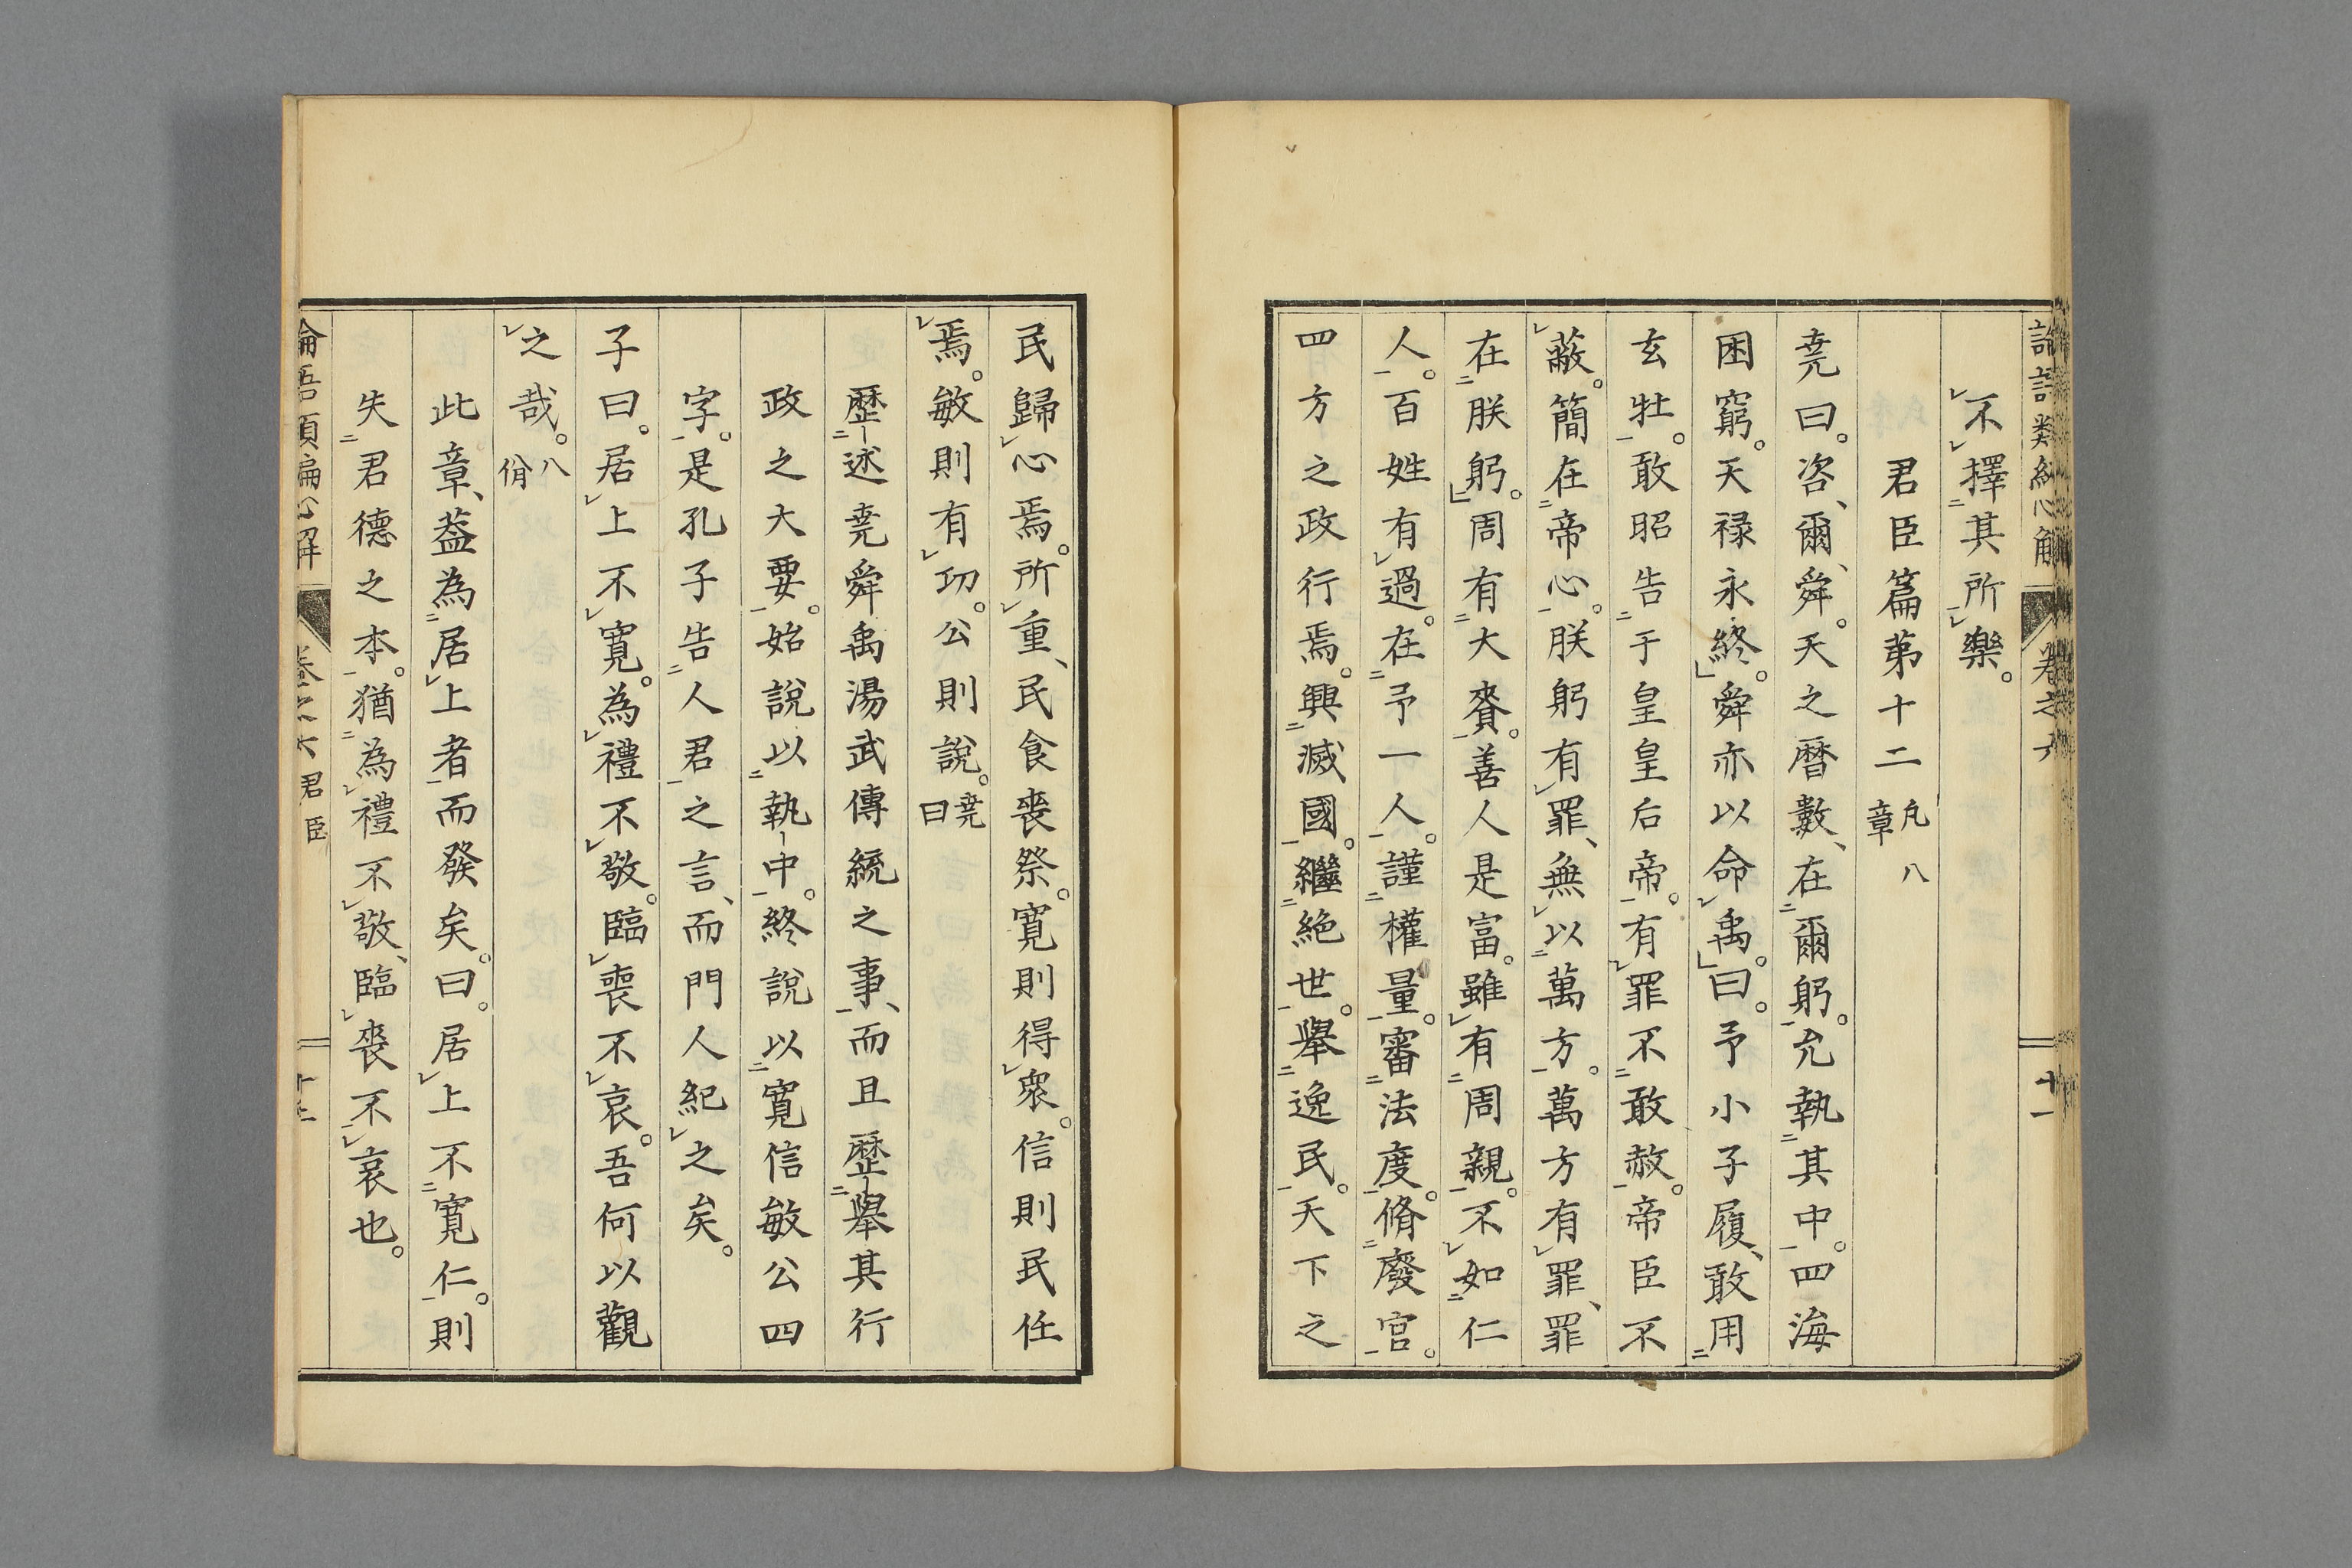 不擇其所樂。
君臣篇第十二 凡八章
堯曰。咨、爾、舜。天之曆數、在爾躬。允執其中。四海
困窮。天禄永終。」舜亦以命禹。」曰。予小子履、敢用
玄牡。敢昭告于皇皇后帝。有罪不敢赦。帝臣不
蔽。簡在帝心。朕躬有罪、無以萬方。萬方有罪、罪
在朕躬。」周有大賚。善人是富。雖有周親。不如仁
人。百姓有過。在予一人。謹權量。審法度。脩廢官。
四方之政行焉。興滅國。繼絶世。舉逸民。天下之
民歸心焉。所重、民食喪祭。寛則得衆。信則民任
焉。敏則有功。公則説。堯曰
歷述堯舜禹湯武傳統之事、而且歷舉其行
政之大要。始説以執中。終説以寛信敏公四
字。是孔子告人君之言、而門人紀之矣。
子曰。居上不寛。為禮不敬。臨喪不哀。吾何以觀
之哉。八佾
此章、葢為居上者而發矣。曰。居上不寛仁。則
失君德之本。猶為禮不敬、臨喪不哀也。
君臣